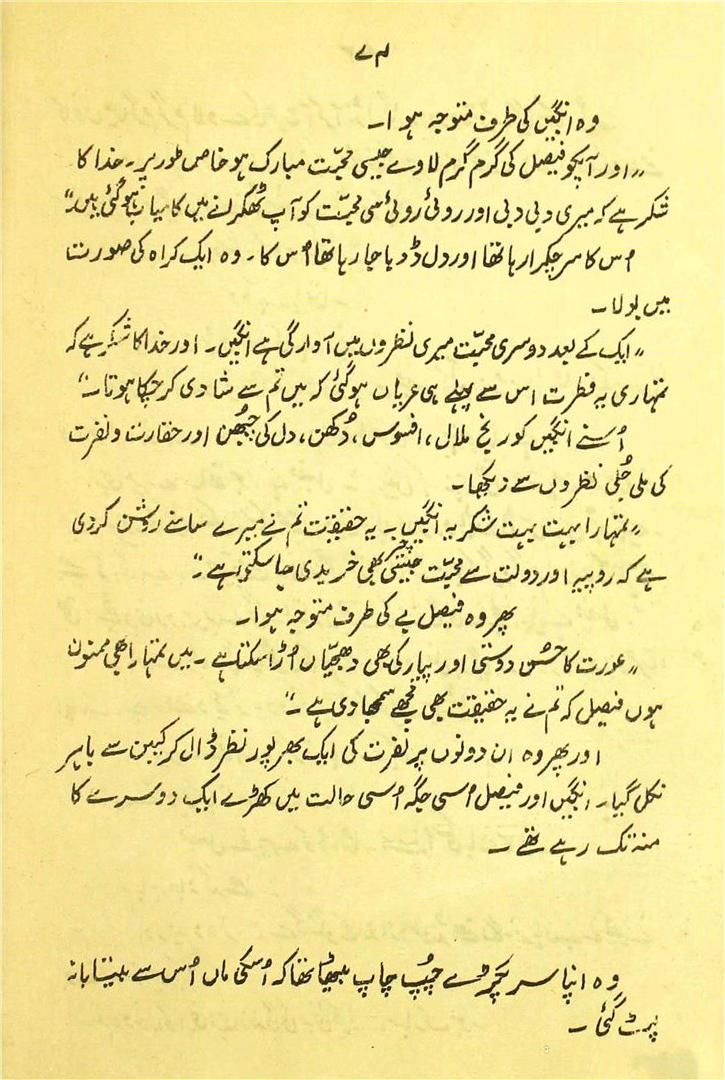 ۷۴
وہ انگبیں کی طرف متوجہ ہوا۔
"اور آپکو فیصل کی گرم گرم لاوے جیسی محبّت مبارک ہو خاص طور پر۔ خدا کا
شکر ہے کہ میری دبی دبی اور روئی روئی سی محبّت کو آپ ٹھکرانے میں کامیاب ہو گئی ہیں۔"
اُس کا سر چکرا رہا تھا اور دل ڈوبا جا رہا تھا اُس کا۔ وہ ایک کراہ کی صورت
میں بولا۔
"ایک کے بعد دوسری محبّت میری نظروں میں آوارگی ہے انگبیں۔ اور خدا کا شکر ہے کہ
تمہاری یہ فطرت اس سے پہلے ہی عریاں ہو گئی کہ میں تم سے شادی کر چکا ہوتا۔"
اُسنے انگبیں کو رنج ملال، افسوس، دُکھن، دل کی چُبھن اور حقارت و نفرت
کی ملی جُلی نظروں سے دیکھا۔
"تمہارا بہت بہت شکریہ انگبیں۔ یہ حقیقت تم نے میرے سامنے روشن کر دی
ہے کہ روپیہ اور دولت سے محبّت جیسی چیز بھی خریدی جا سکتی ہے۔"
پھر وہ فیصل بے کی طرف متوجہ ہوا۔
"عورت کا حُسن دوستی اور پیار کی بھی دھجّیاں اُڑا سکتا ہے۔ میں تمہارا بھی ممنون
ہوں فیصل کہ تم نے یہ حقیقت بھی مُجھے سمجھا دی ہے۔"
اور پھر وہ ان دونوں پر نفرت کی ایک بھرپور نظر ڈال کر کیبن سے باہر
نکل گیا۔ انگبیں اور فیصل اُسی جگہ اُسی حالت میں کھڑے ایک دوسرے کا
منہ تک رہے تھے۔
وہ اپنا سر پکڑے چُپ چاپ بیٹھا تھا کہ اُسکی ماں اُس سے بیتابانہ
لپٹ گئی۔